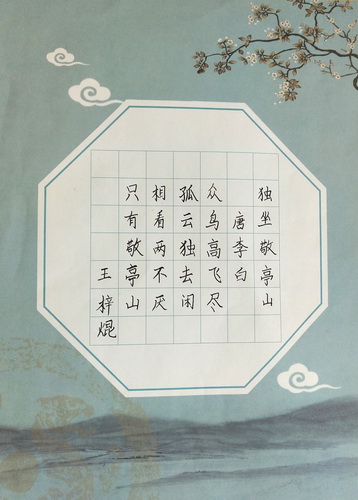 独坐敬亭山
唐李白
众鸟高飞尽
孤云独去闲
相看两不厌
只有敬亭山
王梓焜